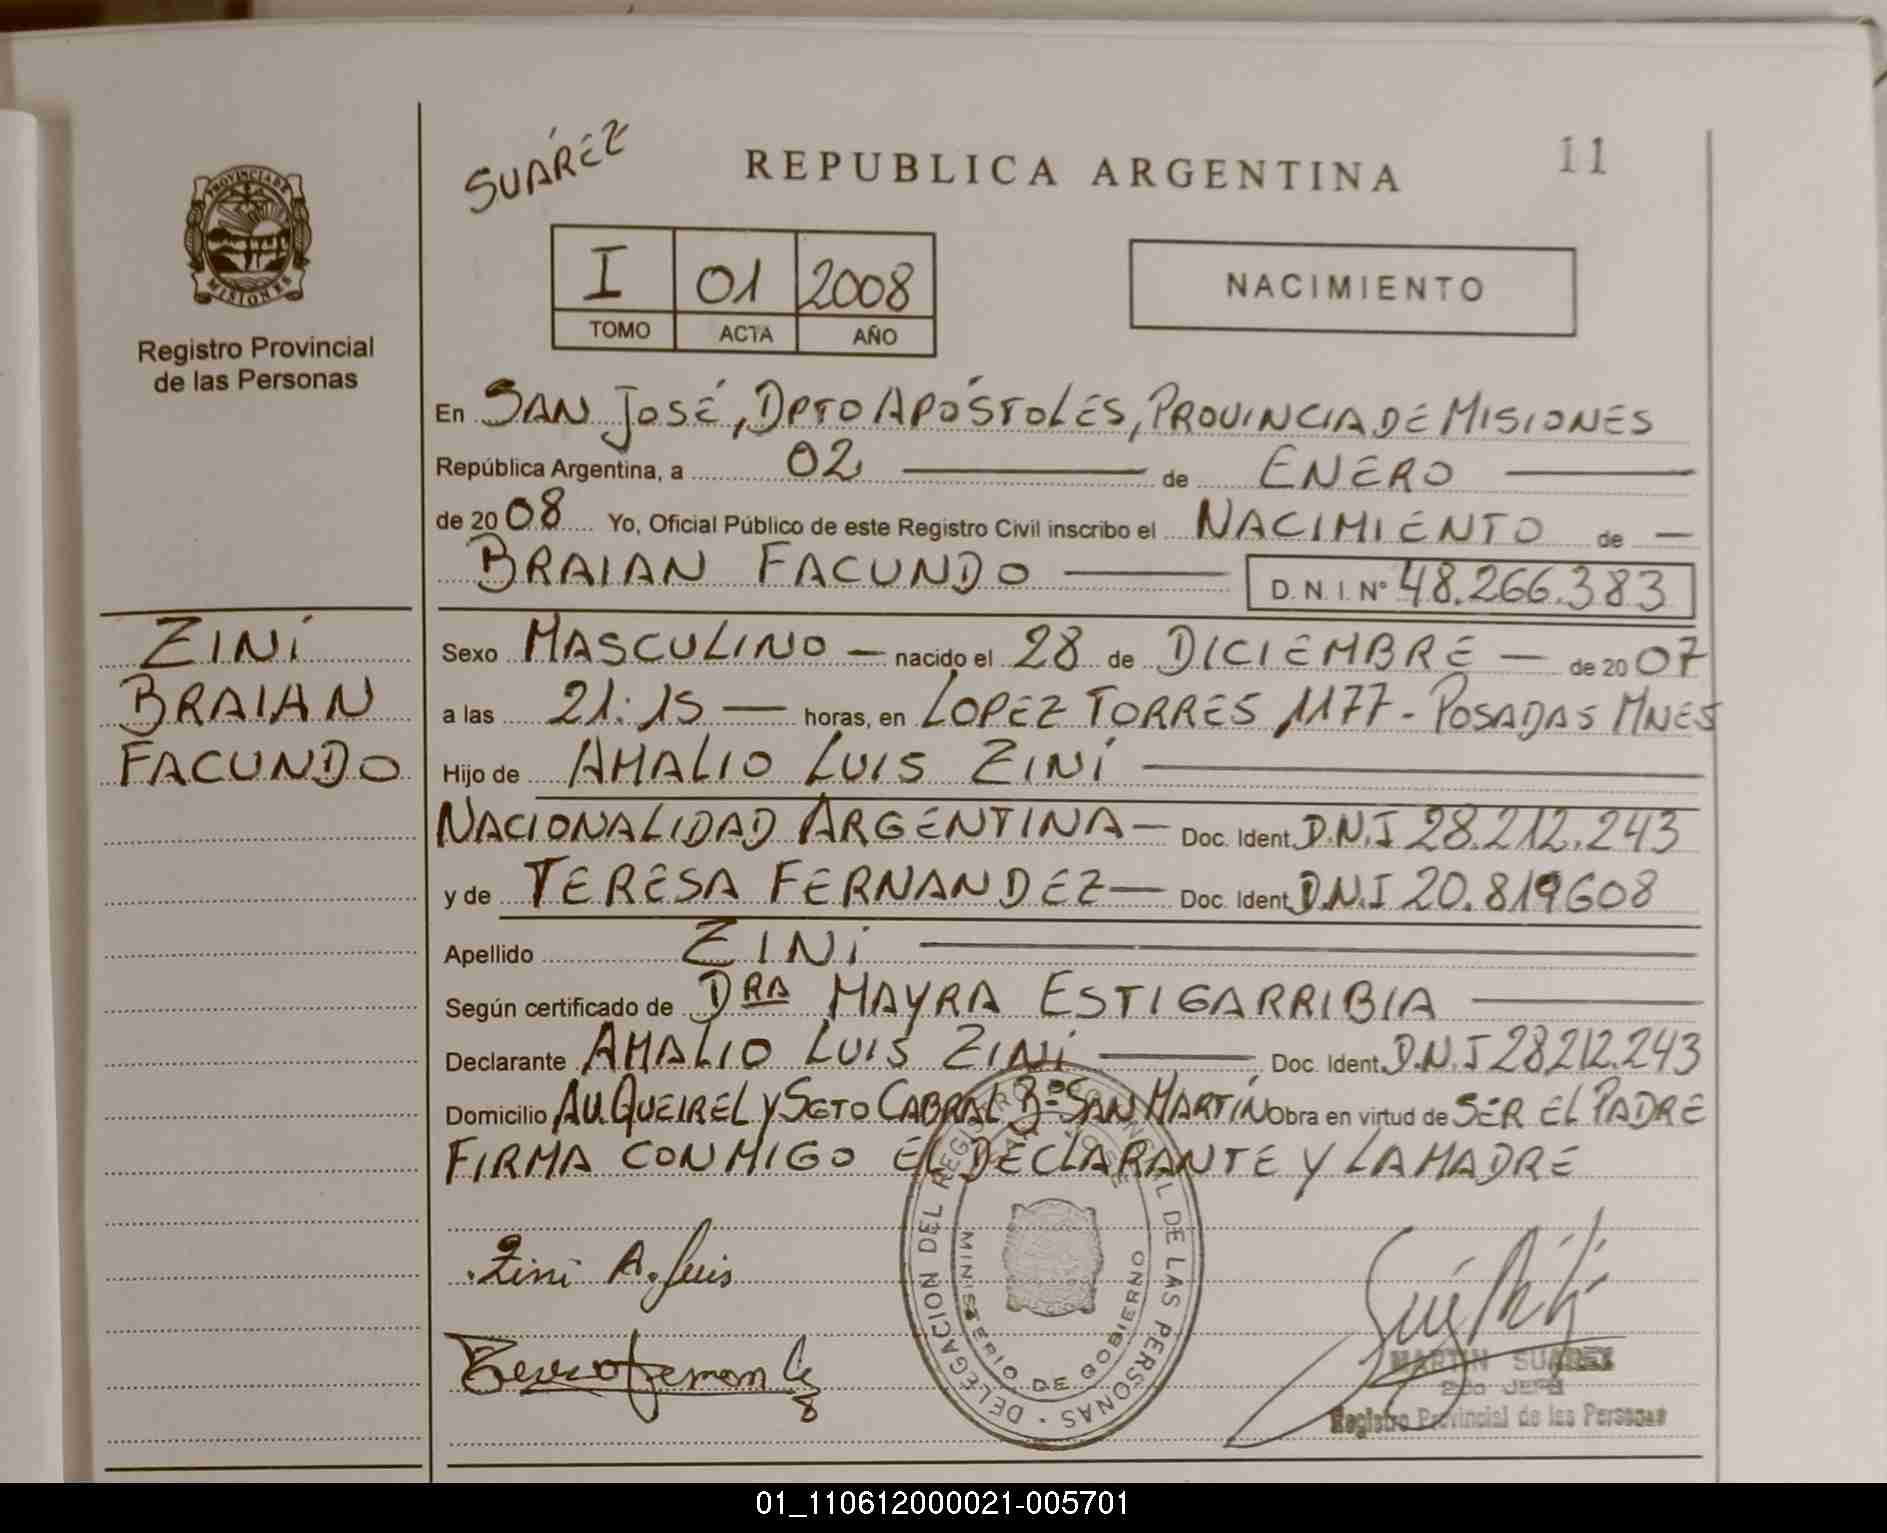 SUÁREZ
REPUBLICA ARGENTINA
11
PROVINCIA DE MISIONES
Registro Provincial
de las Personas
I 01 2008
TOMO ACTA AÑO
NACIMIENTO
En SAN JOSÉ, DPTO APÓSTOLES, PROVINCIA DE MISIONES
República Argentina, a 02 de ENERO
de 2008 Yo, Oficial Público de este Registro Civil inscribo el NACIMIENTO de
BRAIAN FACUNDO D. N. I. Nº 48.266.383
ZINI
BRAIAN
FACUNDO
Sexo MASCULINO — nacido el 28 de DICIEMBRE — de 2007
a las 21:15 — horas, en LOPEZ TORRES 1177 - POSADAS MNES
Hijo de AMALIO LUIS ZINI
NACIONALIDAD ARGENTINA — Doc. Ident. D.N.I 28.212.243
y de TERESA FERNANDEZ — Doc. Ident. D.N.I 20.819608
Apellido ZINI
Según certificado de DRA MAYRA ESTIGARRIBIA
Declarante AMALIO LUIS ZINI Doc. Ident. D.N.I 28212.243
Domicilio AV. QUEIREL Y SGTO CABRAL Bº SAN MARTÍN Obra en virtud de SER EL PADRE
FIRMA CONMIGO EL DECLARANTE Y LA MADRE
Zini A. Luis
DELEGACION DEL REGISTRO PROVINCIAL DE LAS PERSONAS
SAN JOSE
MINISTERIO DE GOBIERNO
MARTIN SUAREZ
2do JEFE
Registro Provincial de las Personas
01_110612000021-005701